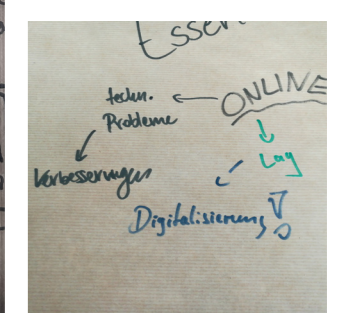 Essen
ONLINE
techn.
Probleme
Lag
Verbesserungen
Digitalisierung!